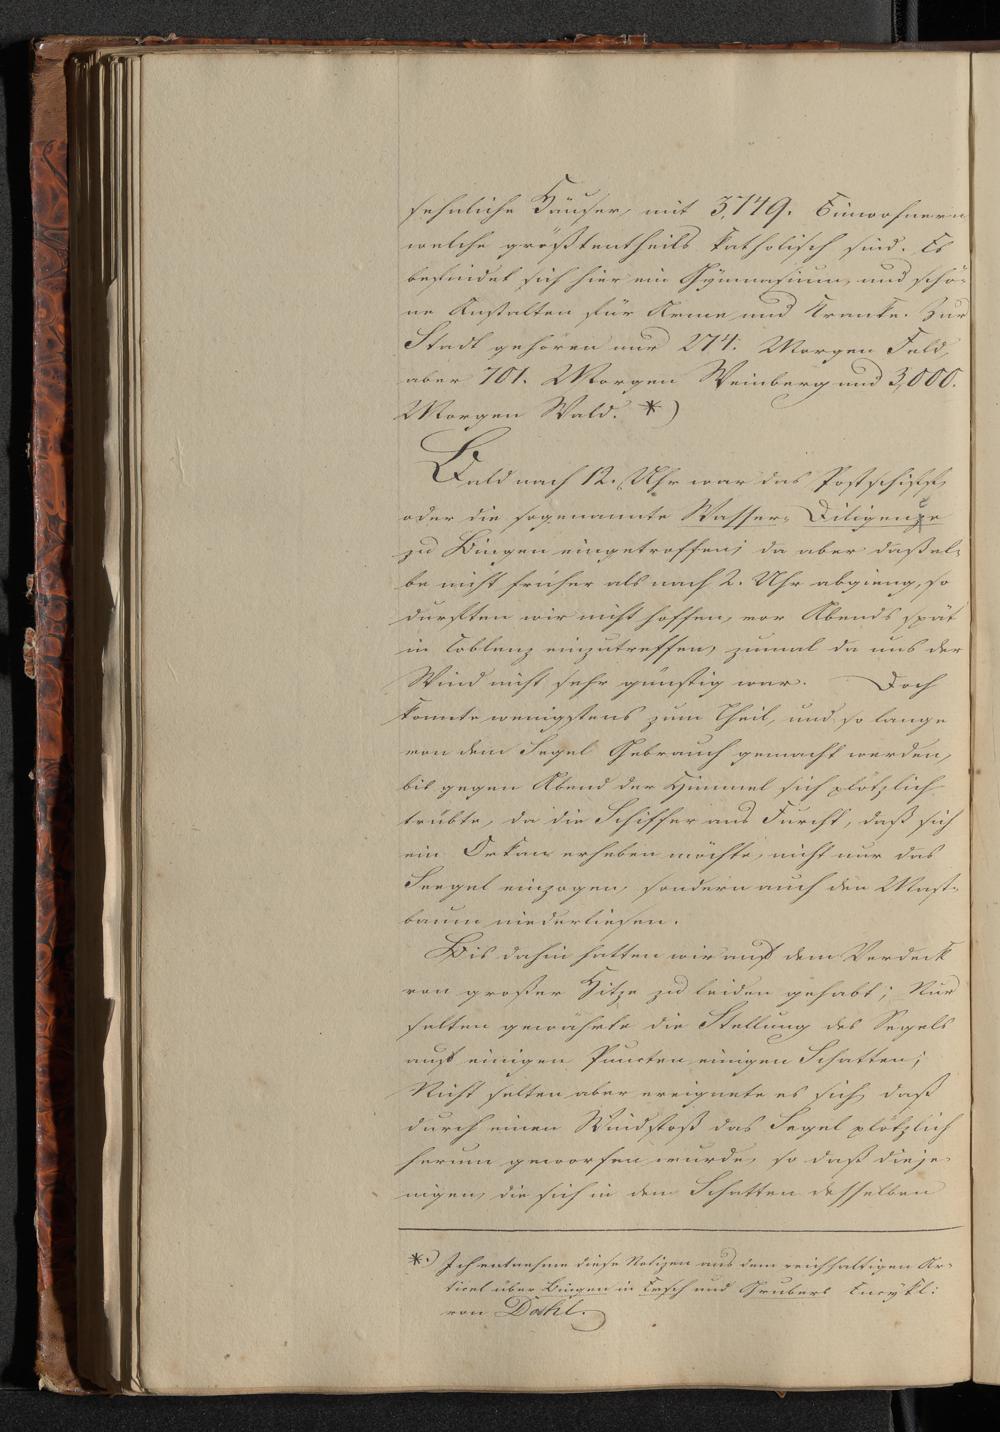 sehnliche Häuser, mit 3,749. Einwohnern
welche größtentheils katholisch sind. Es
befindet sich hier ein Gÿmnasium, und schö-
ne Anstalten für Arme und Kranke. Zur
Stadt gehören nur 274. Morgen Feld,
aber 701. Morgen Weinberg und 3,000.
Morgen Wald. *)
Bald nach 12. Uhr war das Postschiff,
oder die sogenannte Wasser-Diligence
zu Bingen eingetroffen; da aber daßel-
be nicht früher als nach 2. Uhr abgieng, so
durften wir nicht hoffen, vor Abends spät
in Coblenz einzutreffen, zumal da uns der
Wind nicht sehr günstig war. Doch
konnte wenigstens zum Theil, und so lange
von dem Segel Gebrauch gemacht werden,
bis gegen Abend der Himmel sich plötzlich
trübte, da die Schiffer aus Furcht, daß sich
ein Orkan erheben möchte, nicht nur das
Seegel einzogen, sondern auch den Mast-
baum niederließen.
Bis dahin hatten wir auf dem Verdeck
von großer Hitze zu leiden gehabt; Nur
selten gewährte die Stellung des Segels
auf einigen Puncten einigen Schatten;
Nicht selten aber ereignete es sich, daß
durch einen Windstoß das Segel plötzlich
herum geworfen wurde, so daß dieje-
nigen, die sich in dem Schatten desselben
*) Ich entnehme diese Notizen aus dem reichhaltigen Ar-
tikel über Bingen in Ersch und Grubers Encÿkl:
von Dahl.